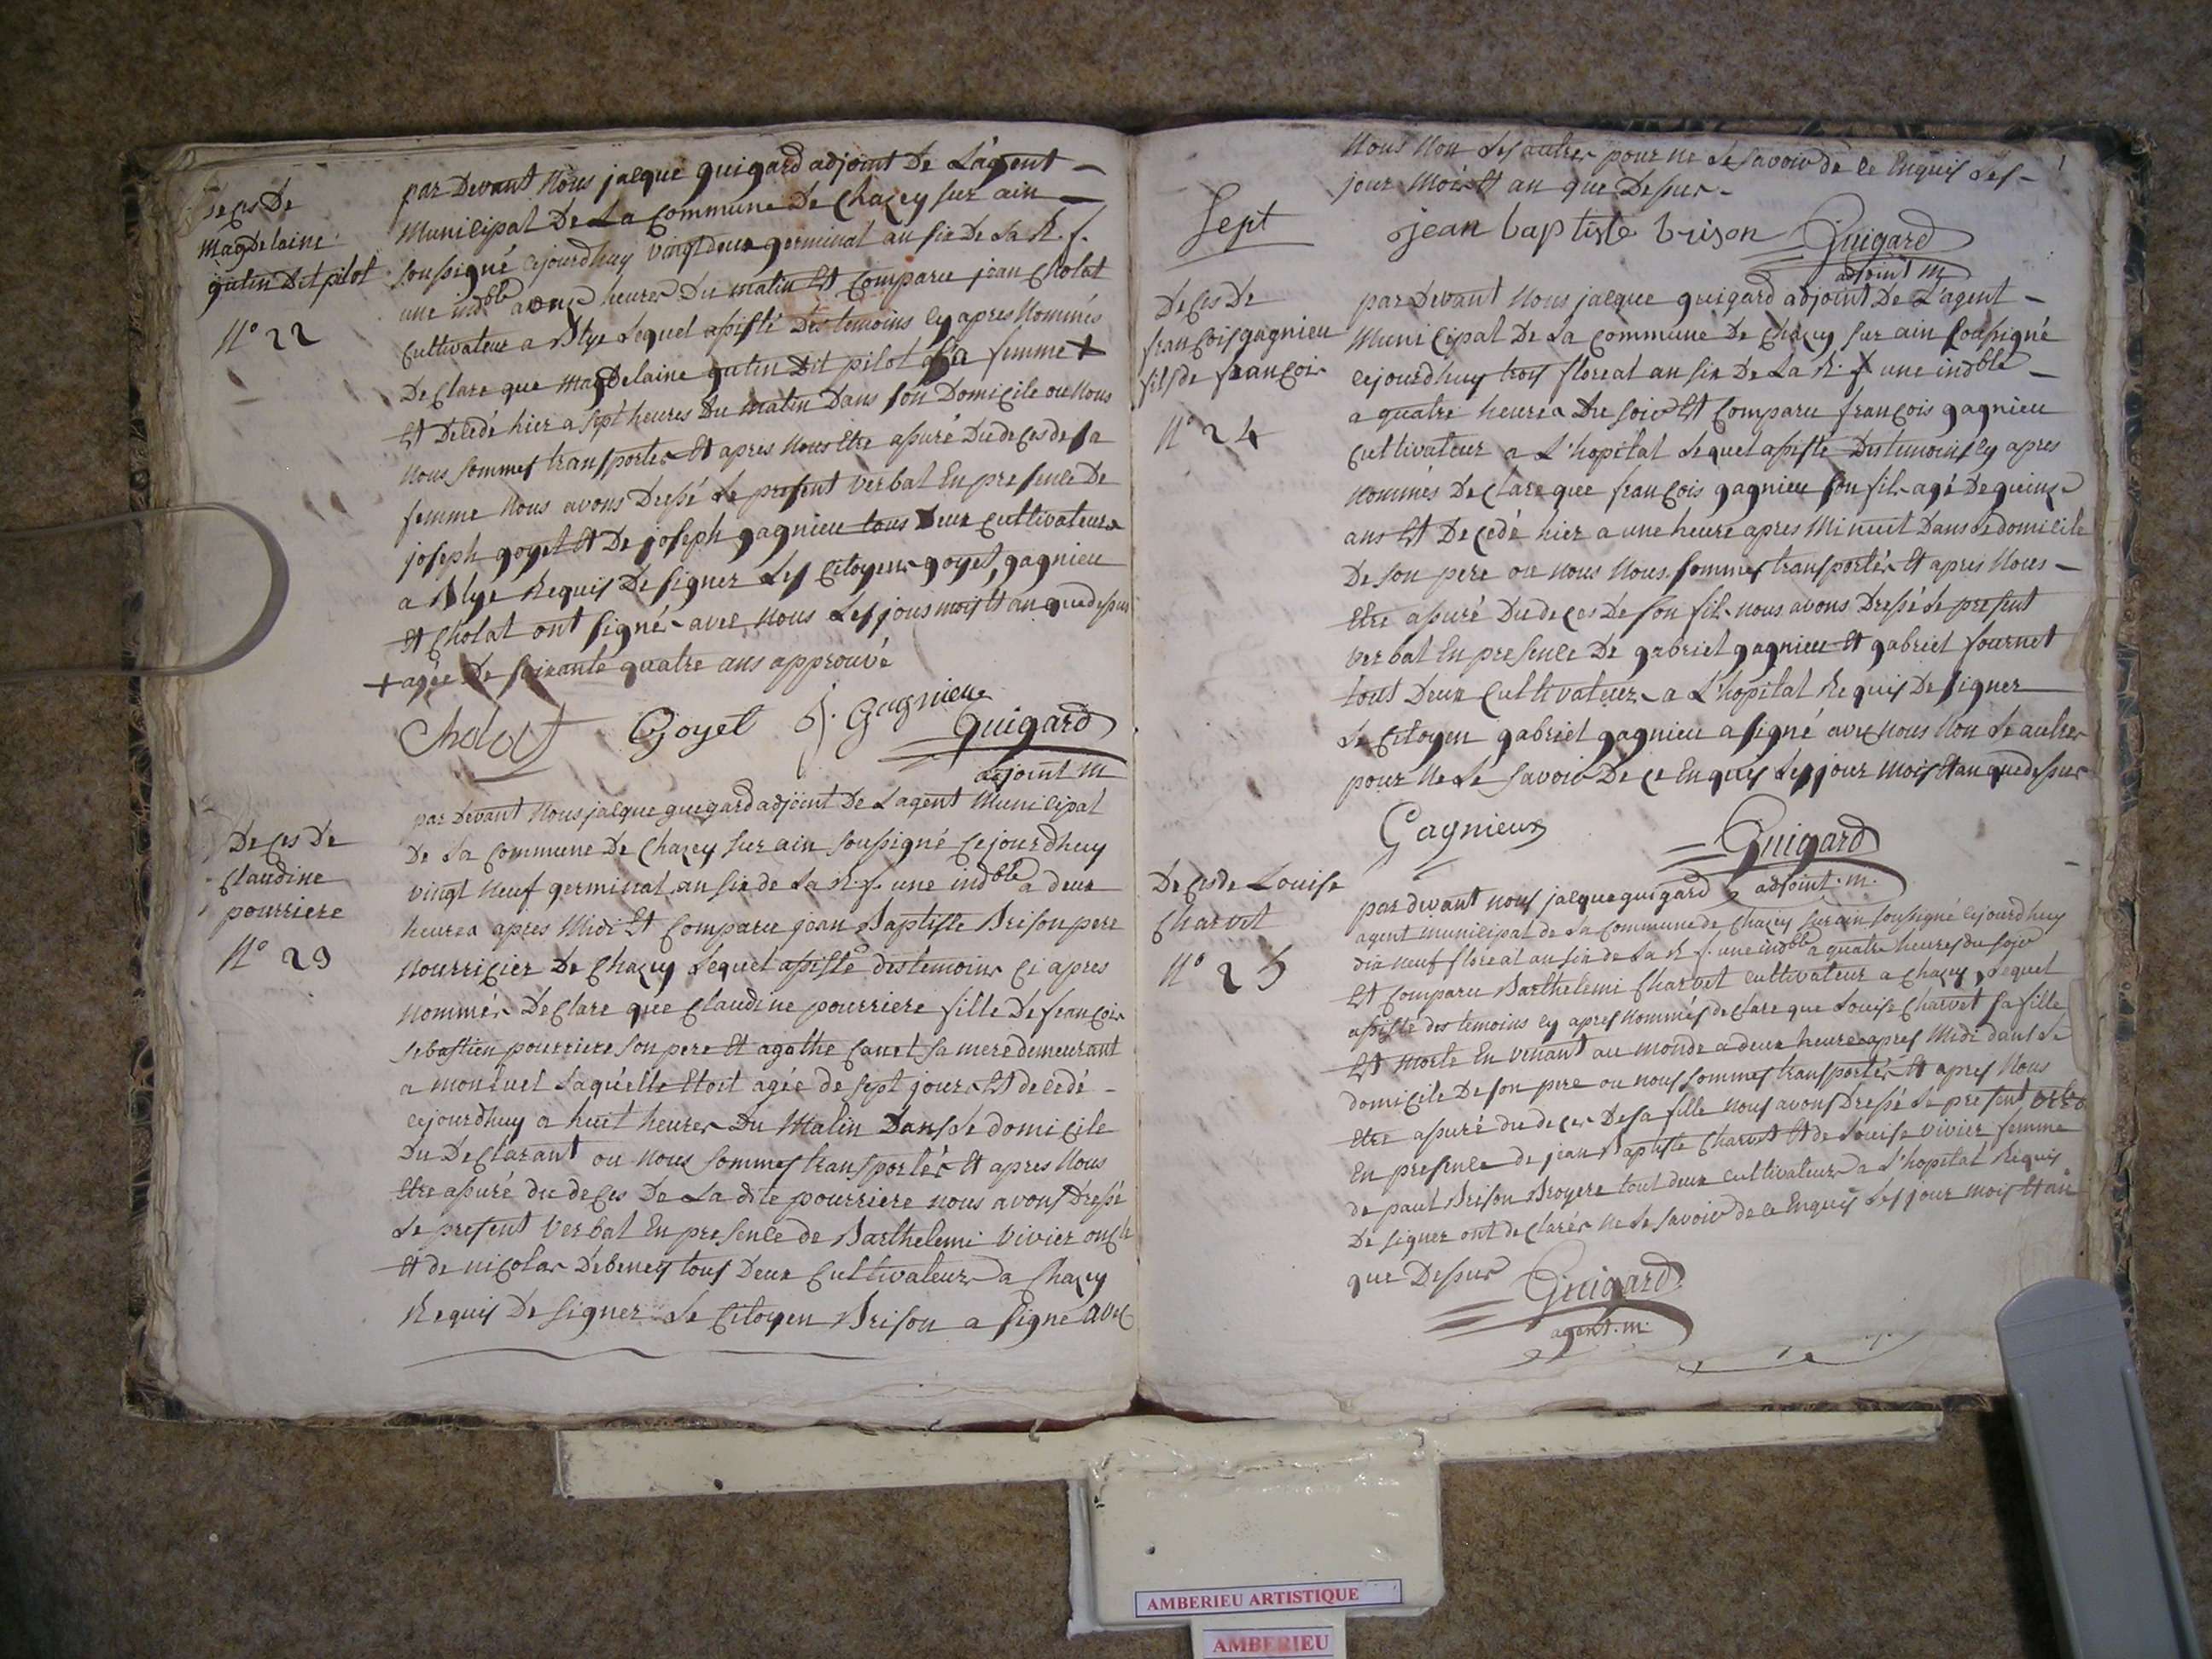 Deces De
Magdelaine
gutin Dit pilot
N° 22
par Devant Nous jacque guigard adjoint De L'agent –
Municipal De La Commune De Chazey sur ain –
soussigné cejourdhuy vingt deux germinal an six De La R. f.
une indble a onze heures Du matin Est Comparu jean Cholat
Cultivateur a Blye Lequel assisté Des temoins cy apres Nommés
Declare que Magdelaine gutin Dit pilot sa femme +
Est Decedé hier a sept heures Du matin Dans son Domicile ou Nous
Nous sommes transportés Et apres Nous Etre assuré Du deces de sa
femme Nous avons Dressé Le present Verbal En presence De
joseph goyet Et De joseph gagnieu tous Deux Cultivateurs
a Blye Requis De signer Les Citoyens goyet, gagnieu
Et Cholat ont signés avec Nous Les jous mois Et an que dessus
+ agée De soixante quatre ans approuvé
Cholat Goyet J. Gagnieu
Guigard
adjoint m
Deces De
Claudine
pourriere
N° 23
par Devant Nous jacque guigard adjoint De L'agent Municipal
De La Commune De Chazey sur ain soussigné Cejourdhuy
vingt Neuf germinal an six de La R. f. une indble a deux
heures apres Midi Est Comparu jean Baptiste Brison pere
Nourricier De Chazey Lequel assisté des temoins Ci apres
Nommés Declare que Claudine pourriere fille De francois
sebastien pourriere son pere Et agathe Canet sa mere demeurant
a montuel Laquelle Etoit agée de sept jours Est decedé –
cejourdhuy a huit heures Du Matin Dans Le domicile
Du Declarant ou Nous sommes transportés Et apres Nous
Etre assuré du deces De La dite pourriere nous avons Dressé
Le present Verbal En presence de Barthelemi Vivier
Et de nicolas Debeney tous Deux Cultivateurs a Chazey
Requis De signer Le Citoyen Brison a signé avec
Nous Non Les autres pour ne Le savoir de ce Enquis Les –
jour Mois Et an que Dessus –
jean baptiste brison Guigard
adjoint m
Sept
Deces De
francois gagnieu
fils de francois
N° 24
par Devant Nous jacque guigard adjoint De L'agent –
Municipal De La Commune De Chazey sur ain soussigné
cejourdhuy trois floreal an six De La R. f. une indble –
a quatre heures Du soir Est Comparu francois gagnieu
Cultivateur a L'hopital Lequel assisté Des temoins cy apres
Nommés Declare que francois gagnieu son fils agé De quinze
ans Est Decedé hier a une heure apres Minuit Dans Le domicile
De son pere ou nous Nous sommes transportés Et apres Nous –
Etre assuré Du deces De son fils nous avons Dressé Le present
Verbal En presence De gabriel gagnieu Et gabriel fournet
tous Deux Cultivateurs a L'hopital Requis De signer
Le Citoyen gabriel gagnieu a signé avec Nous Non Le autres
pour Ne Le savoir De ce Enquis Les jour Mois Et an que dessus
Gagnieux Guigard
adjoint . m .
Deces de Louise
Charvet
N° 25
par devant nous jacque guigard
agent municipal de La Commune de Chazey sur ain soussigné cejourdhuy
dix neuf floreal an six de La R f. une indble a quatre heures du soir
Est Comparu Barthelemi Charvet Cultivateur a Chazey, Lequel
assisté des temoins cy apres Nommés declare que Louise Charvet sa fille
Est morte En venant au monde a deux heures apres Midi dans Le
domicile De son pere ou nous sommes transportés Et apres Nous
Etre assuré du deces De sa fille nous avons Dressé Le present
En presence de jean Baptiste Charvet Et de Louise vivier femme
de paul Brison Broyere tout deux cultivateurs a L'hopital Requis
De signer ont declarés Ne Le savoir de ce Enquis Les jour mois Et an
que Dessus Guigard
agent . m .
AMBERIEU ARTISTIQUE
AMBERIEU